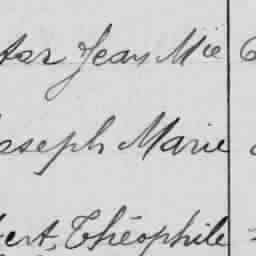 tor Jean Mie
oseph Marie
bert, Théophile